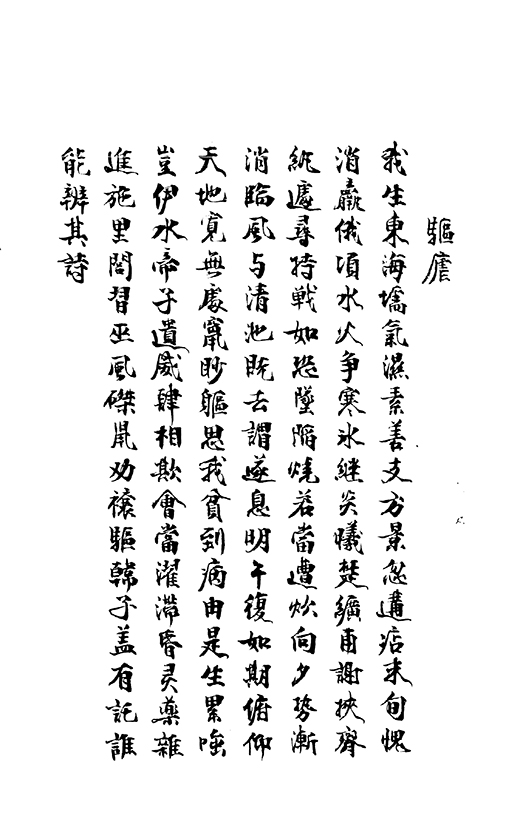 驅瘧
我生東海壖氣濕素善支方景忽遘痁未旬愧
消羸俄頃水火争寒氷継炎曦楚纊甫謝挾齊
紈遽尋持戦如恐墜陷燒若當遭炊向夕势漸
消臨風与清池既去謂遂息明午復如期俯仰
天地寛無處竄眇軀思我貧到病由是生累嗤
豈伊水帝子遺威肆相欺會當濯滞昏灵藥雜
進施里閭習巫風磔鼡劝禳驅韓子盖有託誰
能辨其詩